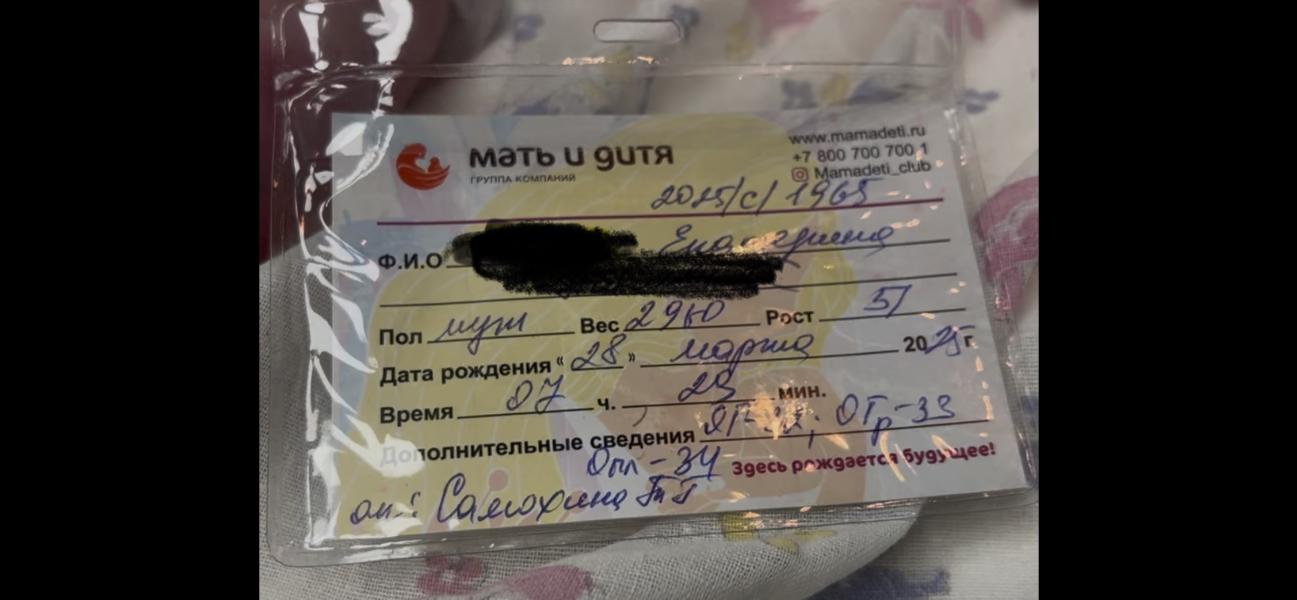 мать и дитя
ГРУППА КОМПАНИЙ
www.mamadeti.ru
+7 800 700 700 1
Mamadeti_club
2025/с/1965
Ф.И.О Екатерина
Пол муж Вес 2960 Рост 51
Дата рождения « 28 » марта 2025 г.
Время 07 ч. 29 мин.
Дополнительные сведения ОГр-33
Опл-34
Здесь рождается будущее!
Самохина